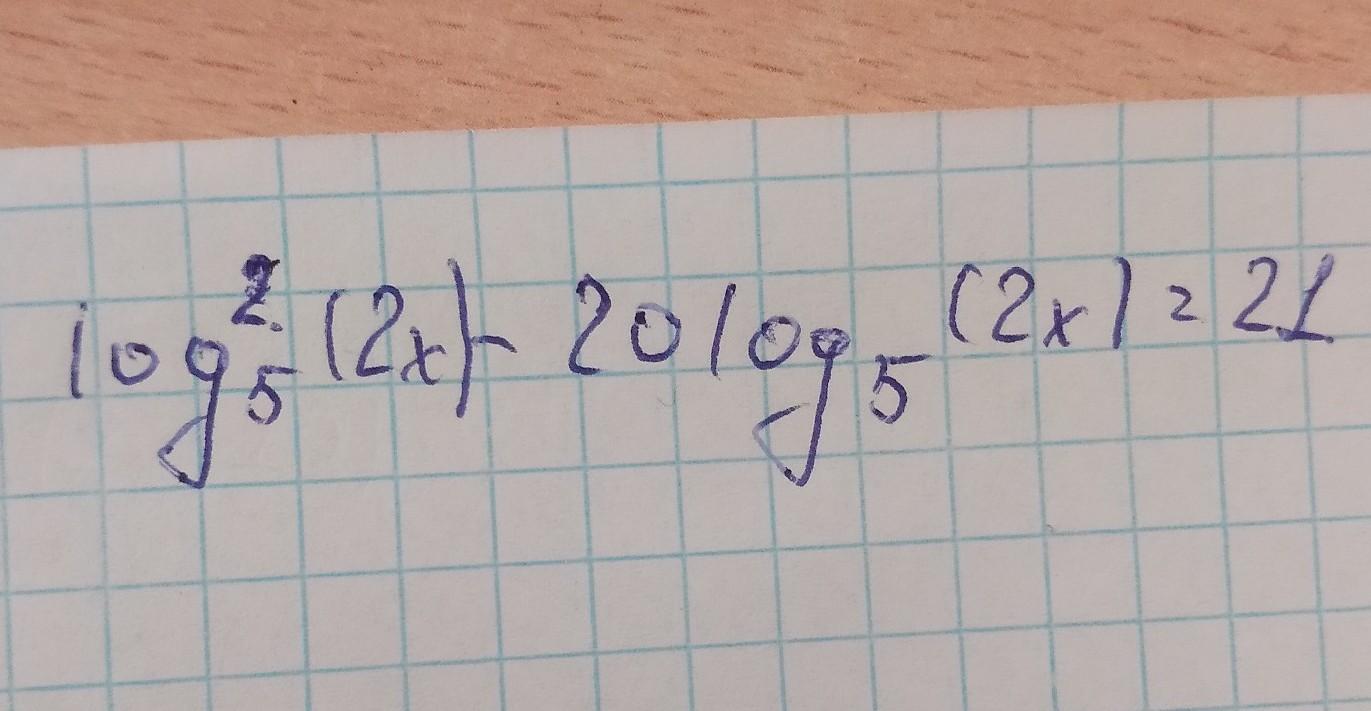 log²₅(2x) - 20log₅(2x) = 21